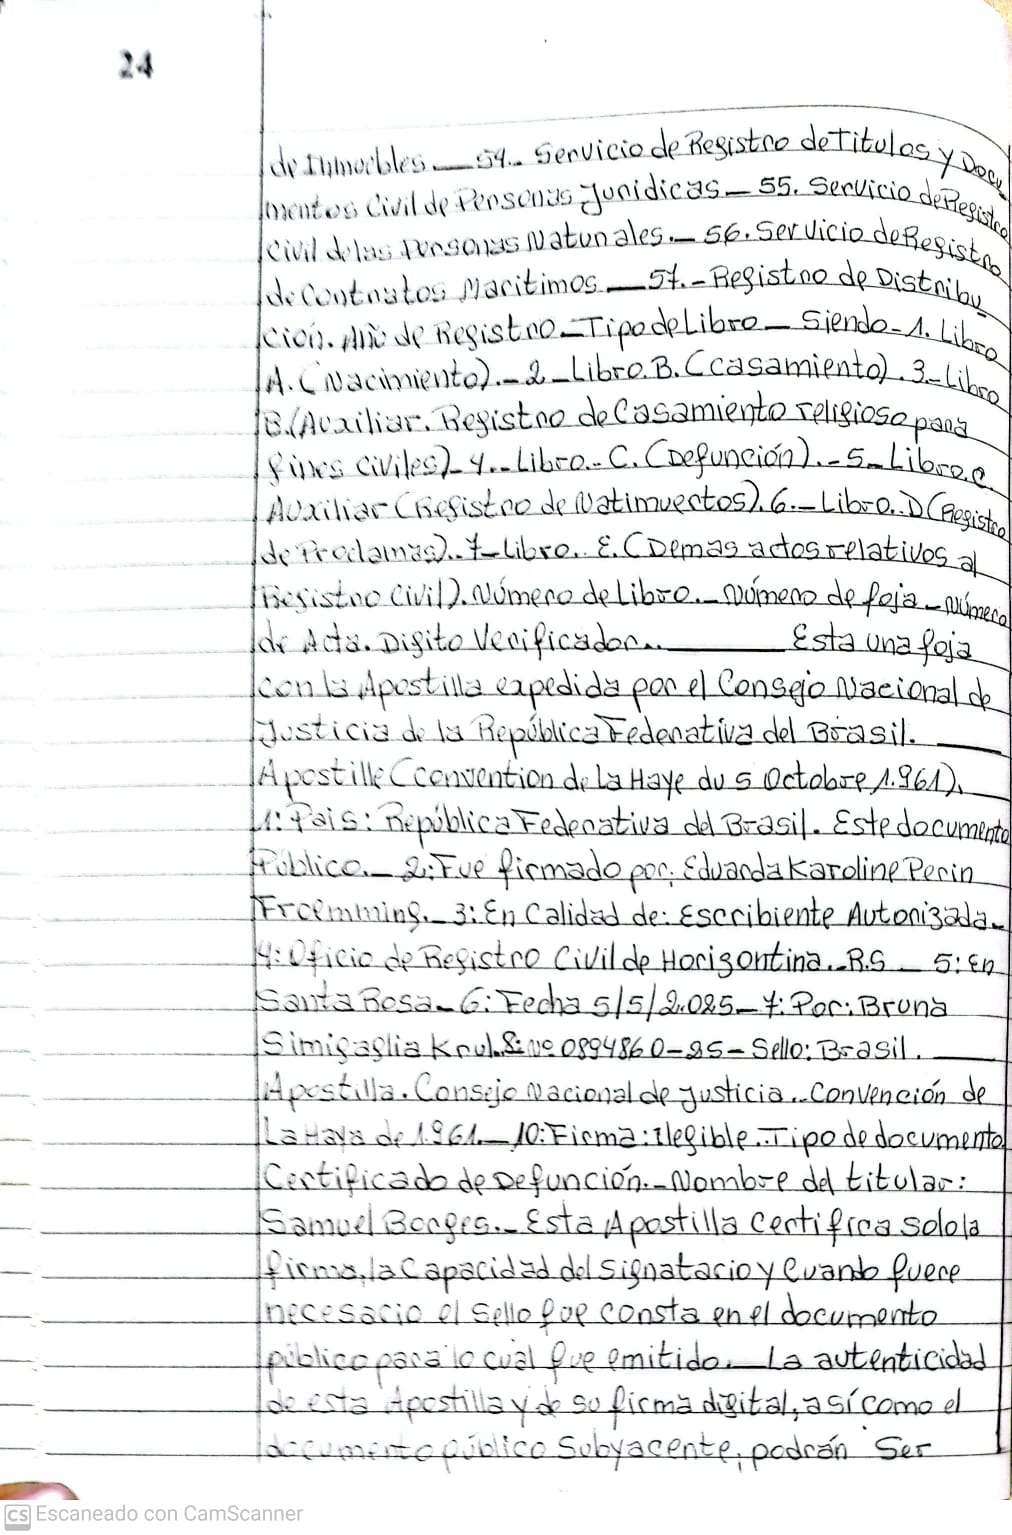 24
de Inmuebles.__ 54.. Servicio de Registro de Titulos y Docu
mentos Civil de Personas Juridicas_ 55. Servicio de Registro
Civil de las Personas Naturales._ 56. Servicio de Registro
de Contratos Maritimos __57.-Registro de Distribu_
ción. Año de Registro_Tipo de Libro_ Siendo-1. Libro
A. (Nacimiento)._2_Libro. B. (casamiento). 3_Libro
B.(Auxiliar. Registro de Casamiento religioso para
fines civiles)_4._Libro.-C. (Defunción)._5_Libro.c
Auxiliar (Registro de Natimuertos). 6._Libro. D (Registro
de Proclamas)..7_Libro.. E. (Demas actos relativos al
Registro Civil). Número de Libro._Número de foja_Número
de Acta. Digito Verificador..________ Esta una foja
con la Apostilla expedida por el Consejo Nacional de
Justicia de la República Federativa del Brasil. ____
Apostille (convention de La Haye du 5 Octobre 1.961).
1: Pais: República Federativa del Brasil. Este documento
Público._ 2: Fue firmado por: Eduarda Karoline Perin
Froemming._ 3: En Calidad de: Escribiente Autorizada_
4: Oficio de Registro Civil de Horizontina._R.S _ 5: En
Santa Rosa_ 6: Fecha 5/5/2.025_ 7: Por: Bruna
Simigaglia Krul. 8: Nº 0894860-25-Sello: Brasil. ____
Apostilla. Consejo Nacional de Justicia.. Convención de
La Haya de 1.961._10: Firma: Ilegible.. Tipo de documento
Certificado de Defunción._Nombre del titular:
Samuel Borges._ Esta Apostilla certifica solo la
firma, la Capacidad del Signatario y Cuando fuere
necesario el Sello que consta en el documento
público para lo cual fue emitido._ La autenticidad
de esta Apostilla y de su firma digital, así como el
documento público Subyacente, podrán Ser
CS Escaneado con CamScanner